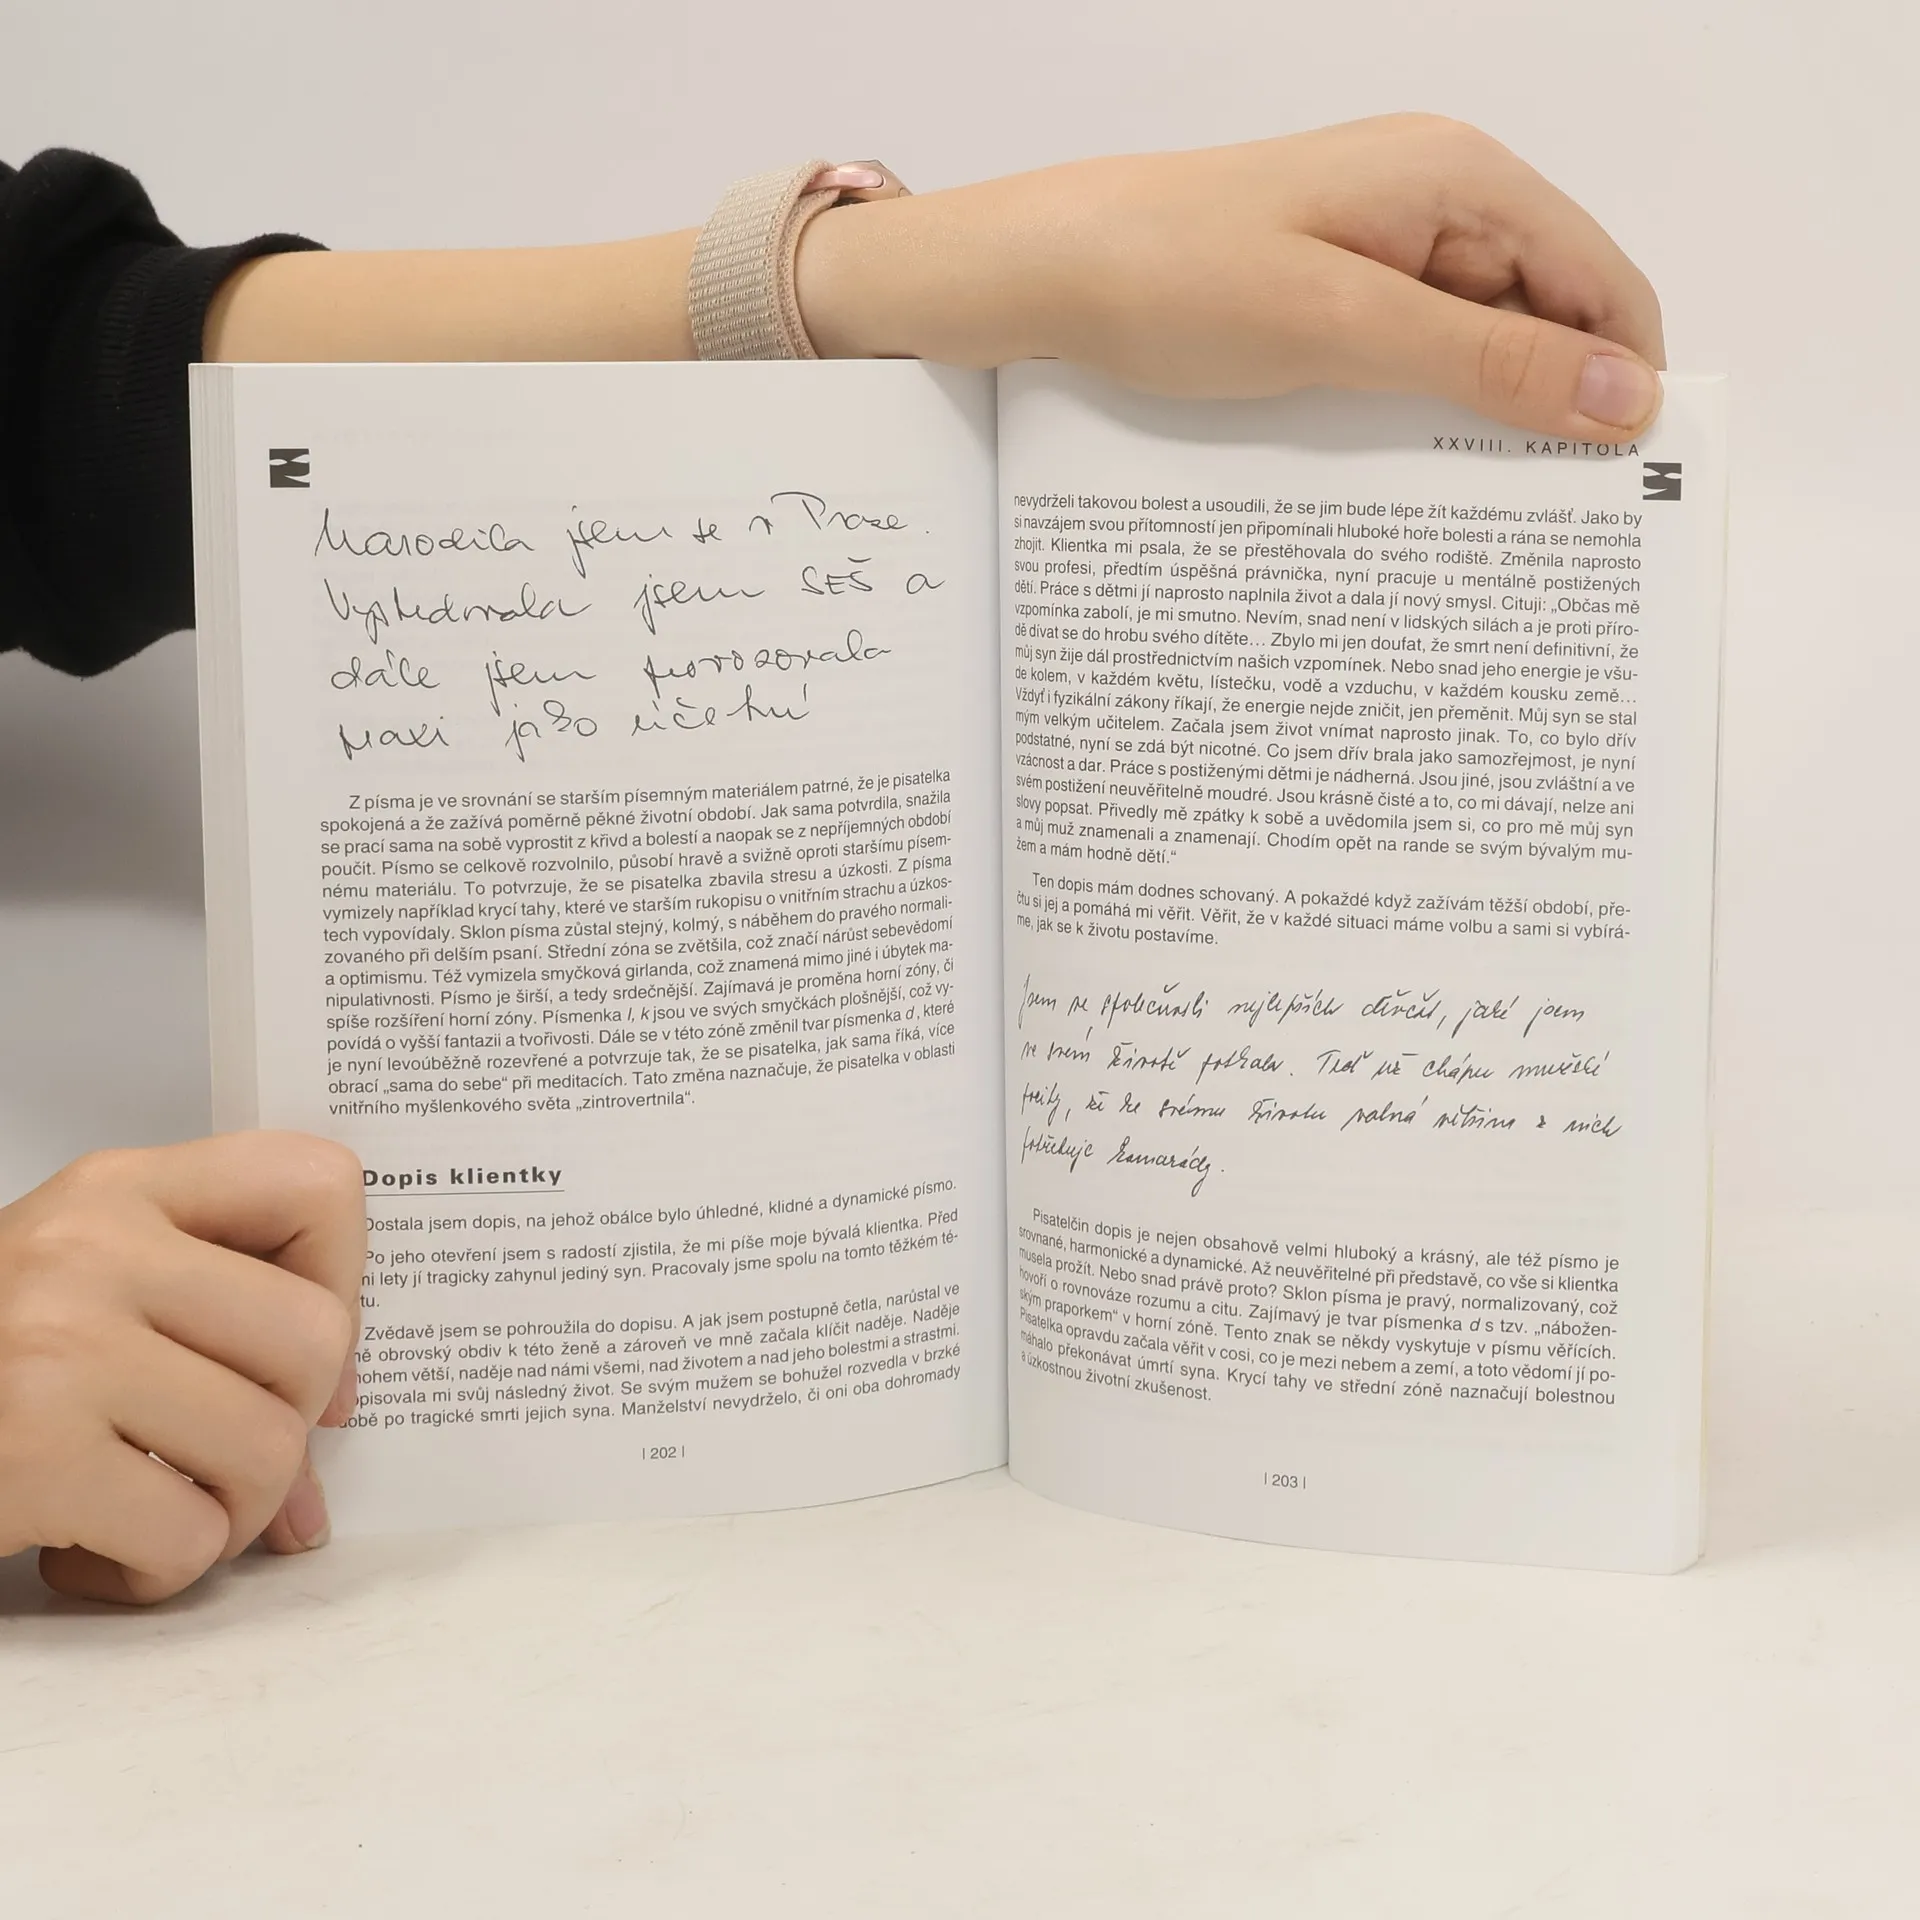 Narodila jsem se v Praze.
Vystudovala jsem SEŠ a
dále jsem provozovala
praxi jako účetní
Z písma je ve srovnání se starším písemným materiálem patrné, že je pisatelka
spokojená a že zažívá poměrně pěkné životní období. Jak sama potvrdila, snažila
se prací sama na sobě vyprostit z křivd a bolestí a naopak se z nepříjemných období
poučit. Písmo se celkově rozvolnilo, působí hravě a svižně oproti staršímu písem-
nému materiálu. To potvrzuje, že se pisatelka zbavila stresu a úzkosti. Z písma
vymizely například krycí tahy, které ve starším rukopisu o vnitřním strachu a úzkos-
tech vypovídaly. Sklon písma zůstal stejný, kolmý, s náběhem do pravého normali-
zovaného při delším psaní. Střední zóna se zvětšila, což značí nárůst sebevědomí
a optimismu. Též vymizela smyčková girlanda, což znamená mimo jiné i úbytek ma-
nipulativnosti. Písmo je širší, a tedy srdečnější. Zajímavá je proměna horní zóny, či
spíše rozšíření horní zóny. Písmenka l, k jsou ve svých smyčkách plošnější, což vy-
povídá o vyšší fantazii a tvořivosti. Dále se v této zóně změnil tvar písmenka d, které
je nyní levoúběžně rozevřené a potvrzuje tak, že se pisatelka, jak sama říká, více
obrací „sama do sebe“ při meditacích. Tato změna naznačuje, že pisatelka v oblasti
vnitřního myšlenkového světa „zintrovertnila“.
Dopis klientky
Dostala jsem dopis, na jehož obálce bylo úhledné, klidné a dynamické písmo.
Po jeho otevření jsem s radostí zjistila, že mi píše moje bývalá klientka. Před
ni lety jí tragicky zahynul jediný syn. Pracovaly jsme spolu na tomto těžkém té-
tu.
Zvědavě jsem se pohroužila do dopisu. A jak jsem postupně četla, narůstal ve
ně obrovský obdiv k této ženě a zároveň ve mně začala klíčit naděje. Naděje
nohem větší, naděje nad námi všemi, nad životem a nad jeho bolestmi a strastmi.
opisovala mi svůj následný život. Se svým mužem se bohužel rozvedla v brzké
době po tragické smrti jejich syna. Manželství nevydrželo, či oni oba dohromady
| 202 |
XXVIII. KAPITOLA
nevydrželi takovou bolest a usoudili, že se jim bude lépe žít každému zvlášť. Jako by
si navzájem svou přítomností jen připomínali hluboké hoře bolesti a rána se nemohla
zhojit. Klientka mi psala, že se přestěhovala do svého rodiště. Změnila naprosto
svou profesi, předtím úspěšná právnička, nyní pracuje u mentálně postižených
dětí. Práce s dětmi jí naprosto naplnila život a dala jí nový smysl. Cituji: „Občas mě
vzpomínka zabolí, je mi smutno. Nevím, snad není v lidských silách a je proti příro-
dě dívat se do hrobu svého dítěte… Zbylo mi jen doufat, že smrt není definitivní, že
můj syn žije dál prostřednictvím našich vzpomínek. Nebo snad jeho energie je všu-
de kolem, v každém květu, lístečku, vodě a vzduchu, v každém kousku země…
Vždyť i fyzikální zákony říkají, že energie nejde zničit, jen přeměnit. Můj syn se stal
mým velkým učitelem. Začala jsem život vnímat naprosto jinak. To, co bylo dřív
podstatné, nyní se zdá být nicotné. Co jsem dřív brala jako samozřejmost, je nyní
vzácnost a dar. Práce s postiženými dětmi je nádherná. Jsou jiné, jsou zvláštní a ve
svém postižení neuvěřitelně moudré. Jsou krásně čisté a to, co mi dávají, nelze ani
slovy popsat. Přivedly mě zpátky k sobě a uvědomila jsem si, co pro mě můj syn
a můj muž znamenali a znamenají. Chodím opět na rande se svým bývalým mu-
žem a mám hodně dětí.“
Ten dopis mám dodnes schovaný. A pokaždé když zažívám těžší období, pře-
čtu si jej a pomáhá mi věřit. Věřit, že v každé situaci máme volbu a sami si vybírá-
me, jak se k životu postavíme.
Jsem ve společnosti nejlepších děvčat, jaké jsem
ve svém životě potkala. Teď už chápu mužské
že ke svému životu valná většina z nich
potřebuje kamarády.
Pisatelčin dopis je nejen obsahově velmi hluboký a krásný, ale též písmo je
srovnané, harmonické a dynamické. Až neuvěřitelné při představě, co vše si klientka
musela prožít. Nebo snad právě proto? Sklon písma je pravý, normalizovaný, což
hovoří o rovnováze rozumu a citu. Zajímavý je tvar písmenka d s tzv. „nábožen-
ským praporkem“ v horní zóně. Tento znak se někdy vyskytuje v písmu věřících.
Pisatelka opravdu začala věřit v cosi, co je mezi nebem a zemí, a toto vědomí jí po-
máhalo překonávat úmrtí syna. Krycí tahy ve střední zóně naznačují bolestnou
a úzkostnou životní zkušenost.
| 203 |